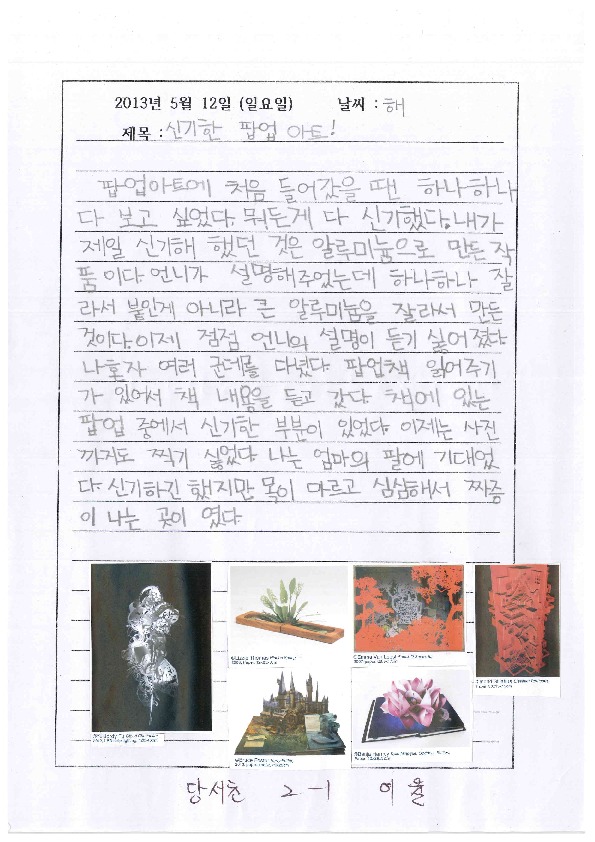 2013년 5월 12일 (일요일) 날씨 : 해
제목 : 신기한 팝업 아트!
팝업아트에 처음 들어갔을 땐 하나하나
다 보고 싶었다. 뭐든게 다 신기했다. 내가
제일 신기해 했던 것은 알루미늄으로 만든 작
품이다. 언니가 설명해주었는데 하나하나 잘
라서 붙인게 아니라 큰 알루미늄을 잘라서 만든
것이다. 이제 점점 언니의 설명이 듣기 싫어졌다.
나혼자 여러 군데를 다녔다. 팝업책 읽어주기
가 있어서 책 내용을 듣고 갔다. 책에 있는
팝업 중에서 신기한 부분이 있었다. 이제는 사진
까지도 찍기 싫었다. 나는 엄마의 팔에 기대었
다. 신기하긴 했지만 목이 마르고 심심해서 짜증
이 나는 곳이 였다.
당서초 2-1 이율